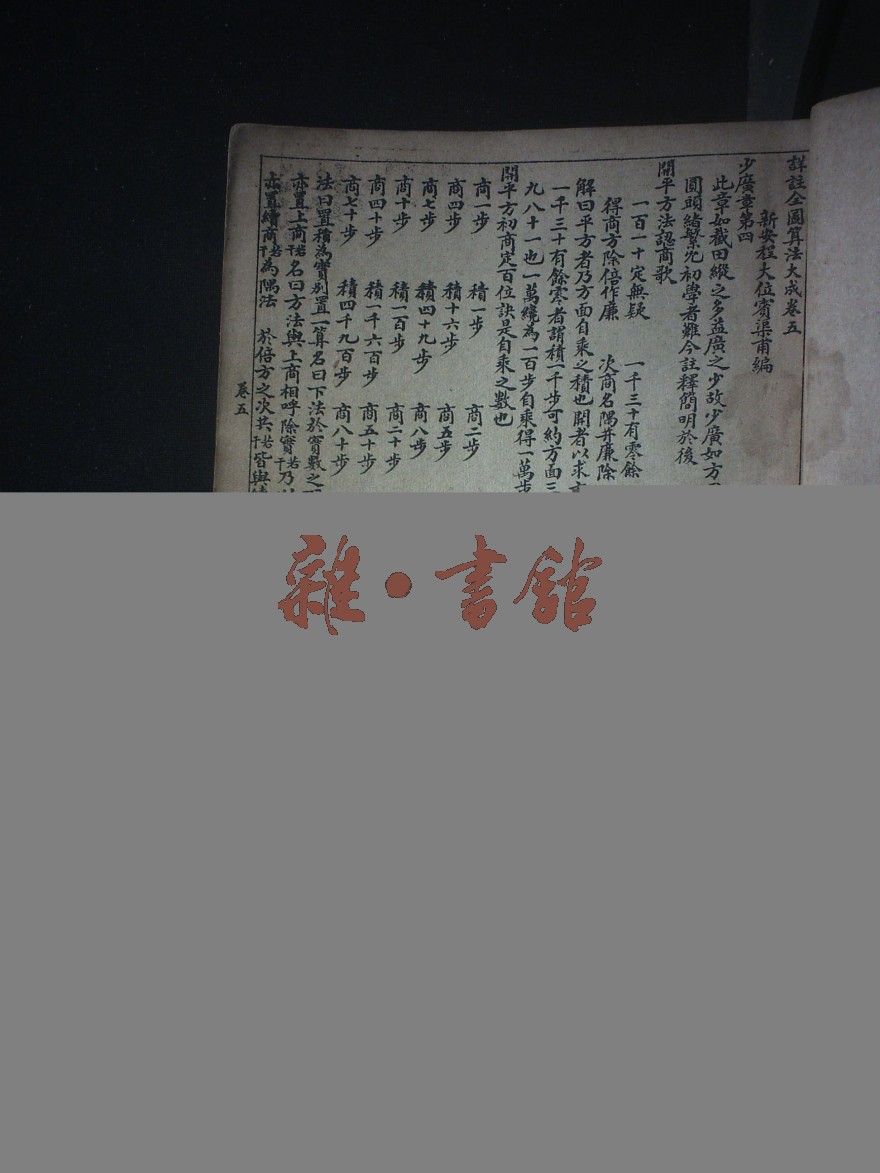 詳註全圖算法大成卷五
新安程大位賓渠甫編
少廣章第四
此章如截田縱之多益廣之少故少廣如方
圓頭緒繁冗初學者難今註釋簡明於後
開平方法認商歌
一百一十定無疑 一千三十有零餘
得商方除倍作廉 次商名隅并廉除
解曰平方者乃方面自乘之積也開者以求
一千三十有餘零者謂積一千步可約方面三
九八十一也一萬纔為一百步自乘得一萬步
開平方初商定百位訣是自乘之數也
商一步 積一步 商二步
商四步 積十六步 商五步
商七步 積四十九步 商八步
商十步 積一百步 商二十步
商四十步 積一千六百步 商五十步
商七十步 積四千九百步 商八十步
法曰置積為實別置一算名曰下法於實數之
亦置上商若干名曰方法與上商相呼除實若干乃
亦置續商若干為隅法 於倍方之次共若干皆與
卷五
雜·書館